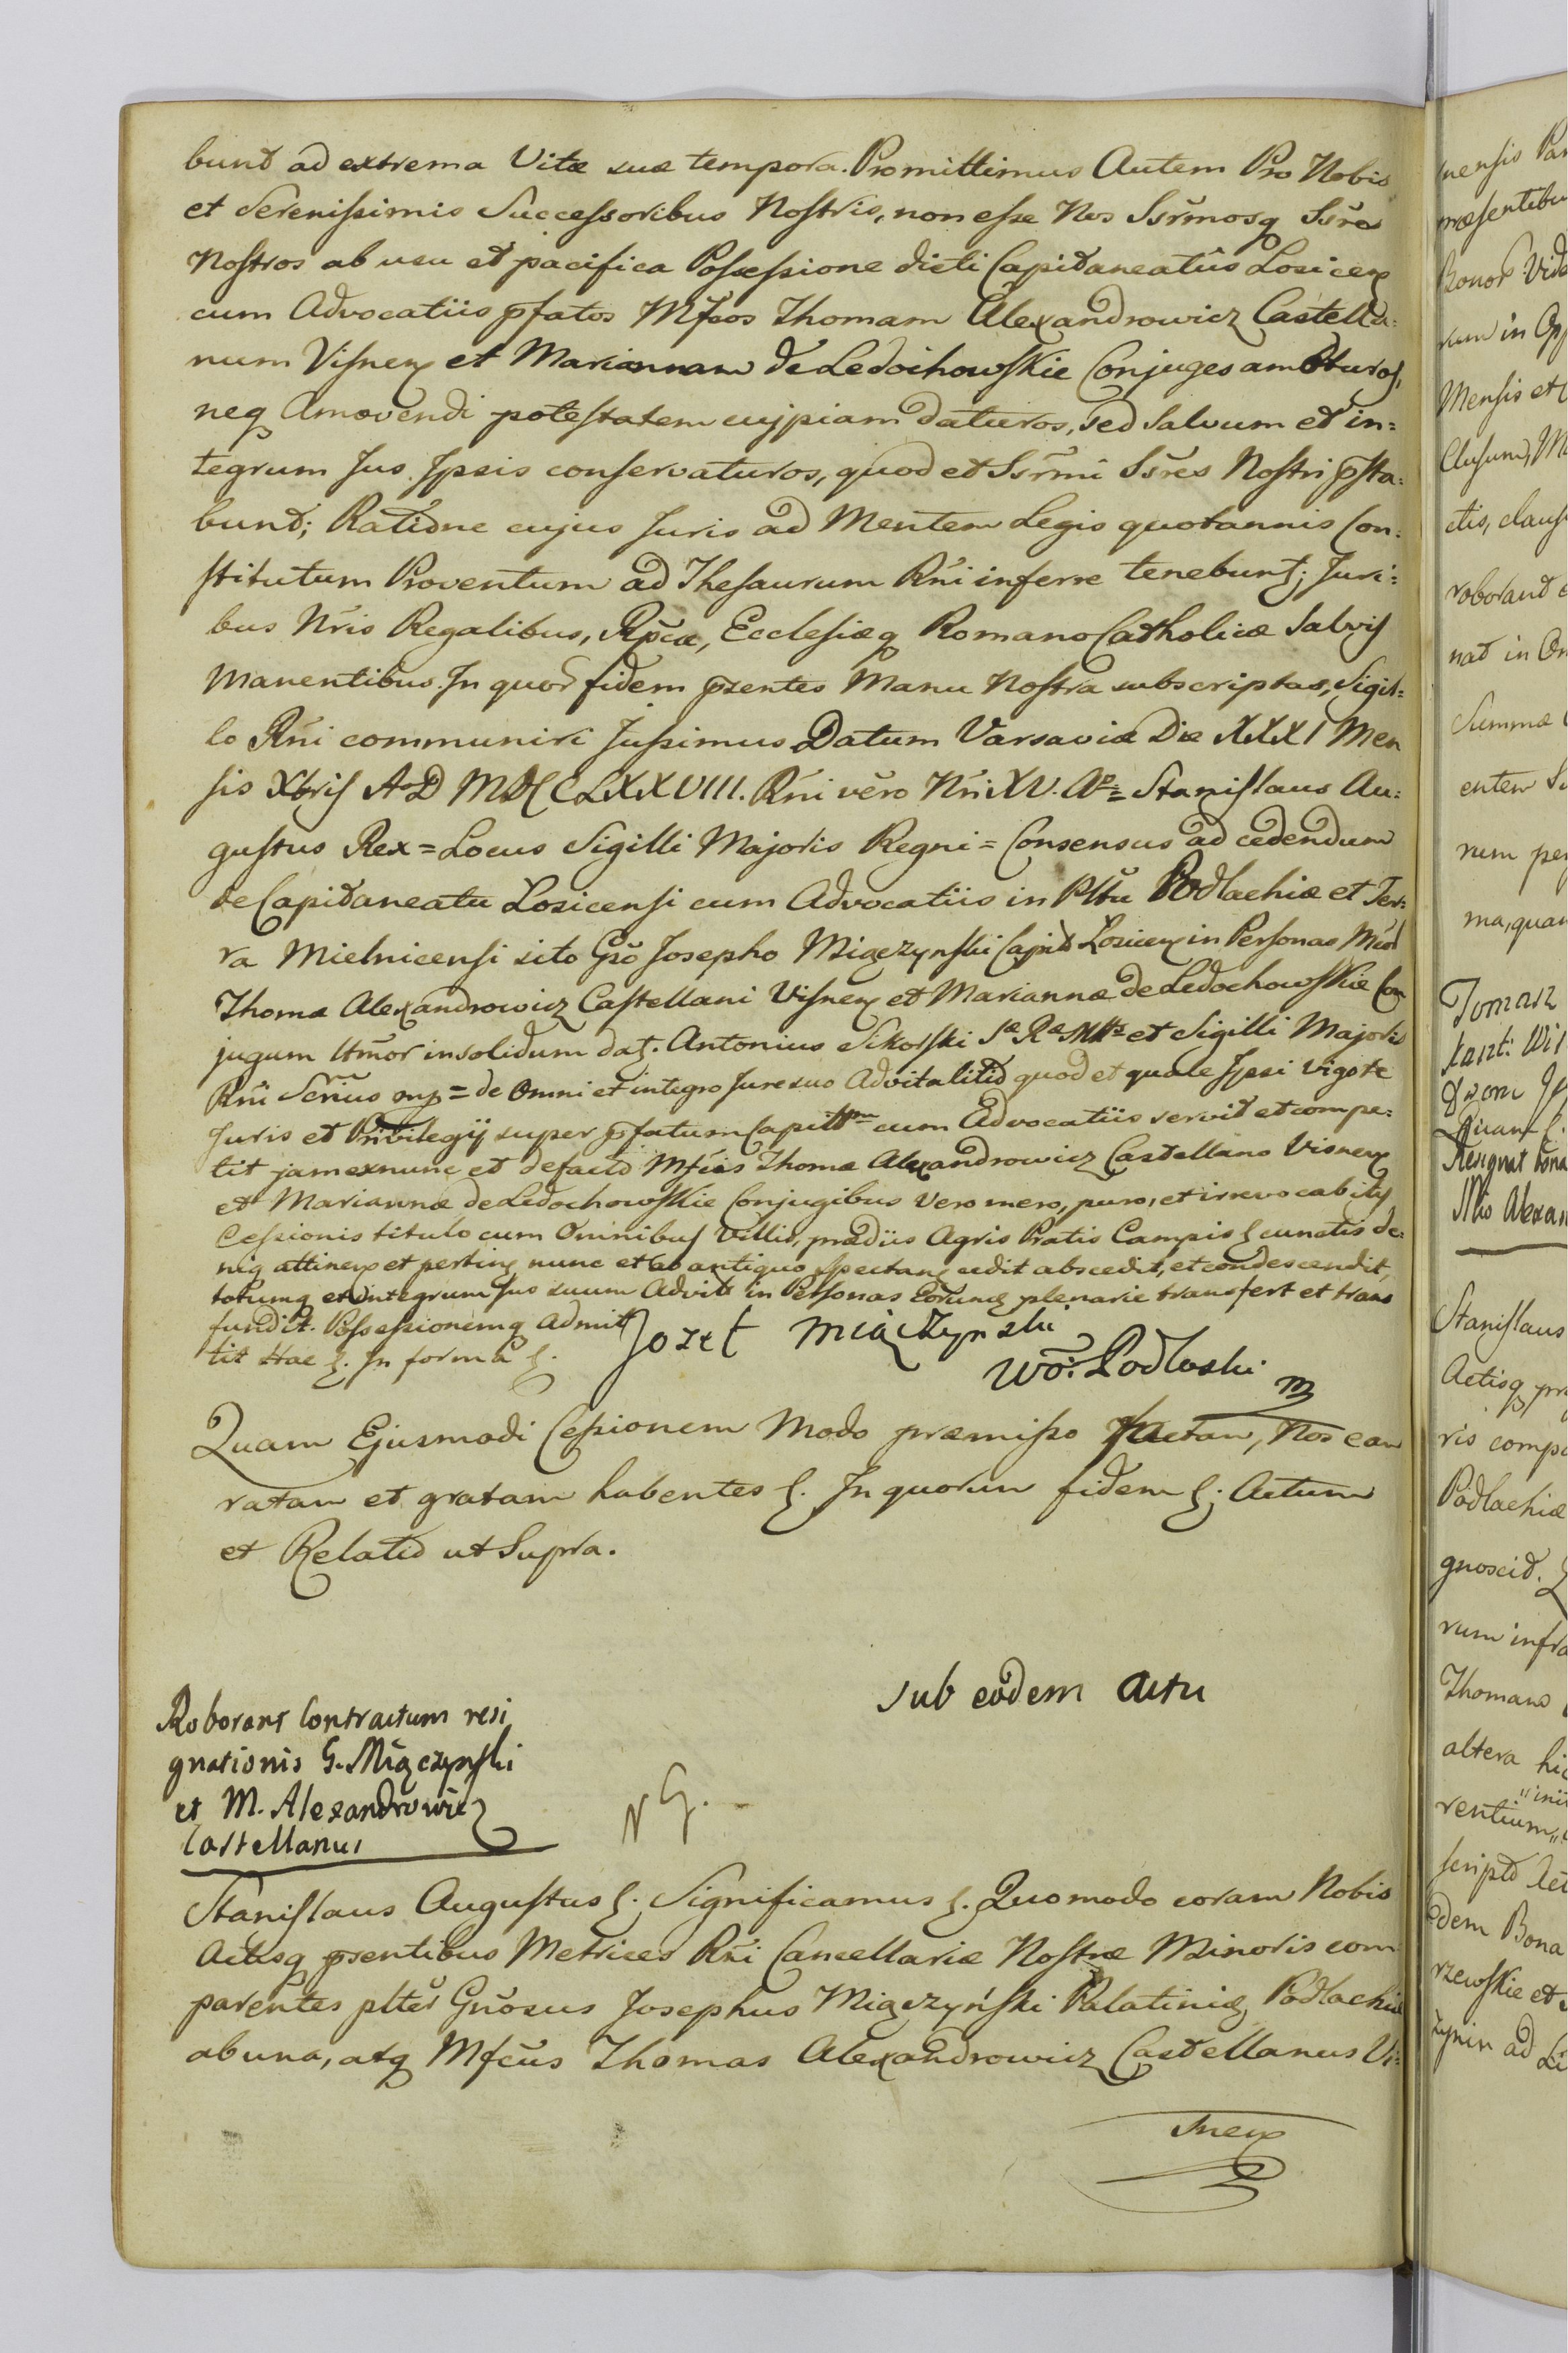 bunt ad extrema Vitæ suæ tempora. Promittimus Autem Pro Nobis
et Serenissimis Successoribus Nostris, non esse Nos Ssr̃mosq Ssr̃es
Nostros ab usu et pacifica Possessione dicti Capitaneatûs Losicen
cum Advocatiis p̃fatos Mfcos Thomam Alexandrowicz Castella=
num Visnen et Mariannam de Ledochowskie Conjuges amoturos,
neq Amovendi potestatem cuipiam daturos, sed Salvum et in=
tegrum Jus Ipsis conservaturos, quod et Ssr̃mi Ssr̃es Nostri p̃sta=
bunt; Ratione cujus Juris ad Mentem Legis quotannis Con=
stitutum Proventum ad Thesaurum Rñi inferre tenebunt; Juri=
bus Nr̃is Regalibus, Rp̃cæ, Ecclesiæq Romano Catholicæ Salvis
Manentibus. In quor fidem p̃sentes Manu Nostra subscriptas, Sigil=
lo Rñi communiri Jussimus Datum Varsaviæ Die XXXI Men
sis Xbris A D MDCCLXXVIII. Rñi vẽro Nr̃i XV. Aº = Stanislaus Au=
gustus Rex = Locus Sigilli Majoris Regni = Consensus ad cedendum
de Capitaneatu Losicensi cum Advocatiis in Pltũ Podlachiæ et Ter=
ra Mielnicensi sito Gso Josepho Miączynski Capit Losicen in Personas Mcor
Thomæ Alexandrowicz Castellani Visnen et Mariannæ de Ledochowskie Con
jugum Utmor insolidum dat. Antonius Sikorski Sæ Ræ Mttis et Sigilli Majoris
Rñi Sẽrius mp = de Omni et integro Jure suo Advitalitio quod et quale Ipsi vigore
Juris et Privilegij super p̃fatum Capittm cum Advocatiis servit et compe=
tit jam ex nunc et de facto Mfcis Thomæ Alexandrowicz Castellano Visnen
et Mariannæ de Ledochowskie Conjugibus vero mero, puro, et irrevocabilis
Cessionis titulo cum Omnibus Villis, prædiis Agris Pratis Campis & cunctis de=
niq attinen et pertinen nunc et ab antiquo Spectan cedit abscedit, et condescendit,
totumq et integrum Jus suum Advit in Personas Eorund plenarie transfert et trans
fundit. Possessionemq Admit
tit Hac &. In forma &.
Jozef Miączynski
Wo: Podloski mp
Quam Ejusmodi Cessionem Modo præmisso factam, Nos eam
ratam et gratam habentes &. In quorum fidem &; Actum
et Relatio ut Supra.
Sub eodem Actu
Roborant Contractum resi
gnationis G. Miączynski
et M. Alexandrowicz
Castellanus
NG.
Stanislaus Augustus &. Significamus &. Quomodo coram Nobis
Actisq p̃sentibus Metrices Rñi Cancellariæ Nostræ Minoris com
parentes pltẽr Gñosus Josephus Miączyński Palatinid Podlachiæ
ab una, atq Mfcus Thomas Alexandrowicz Castellanus Vi=
snen